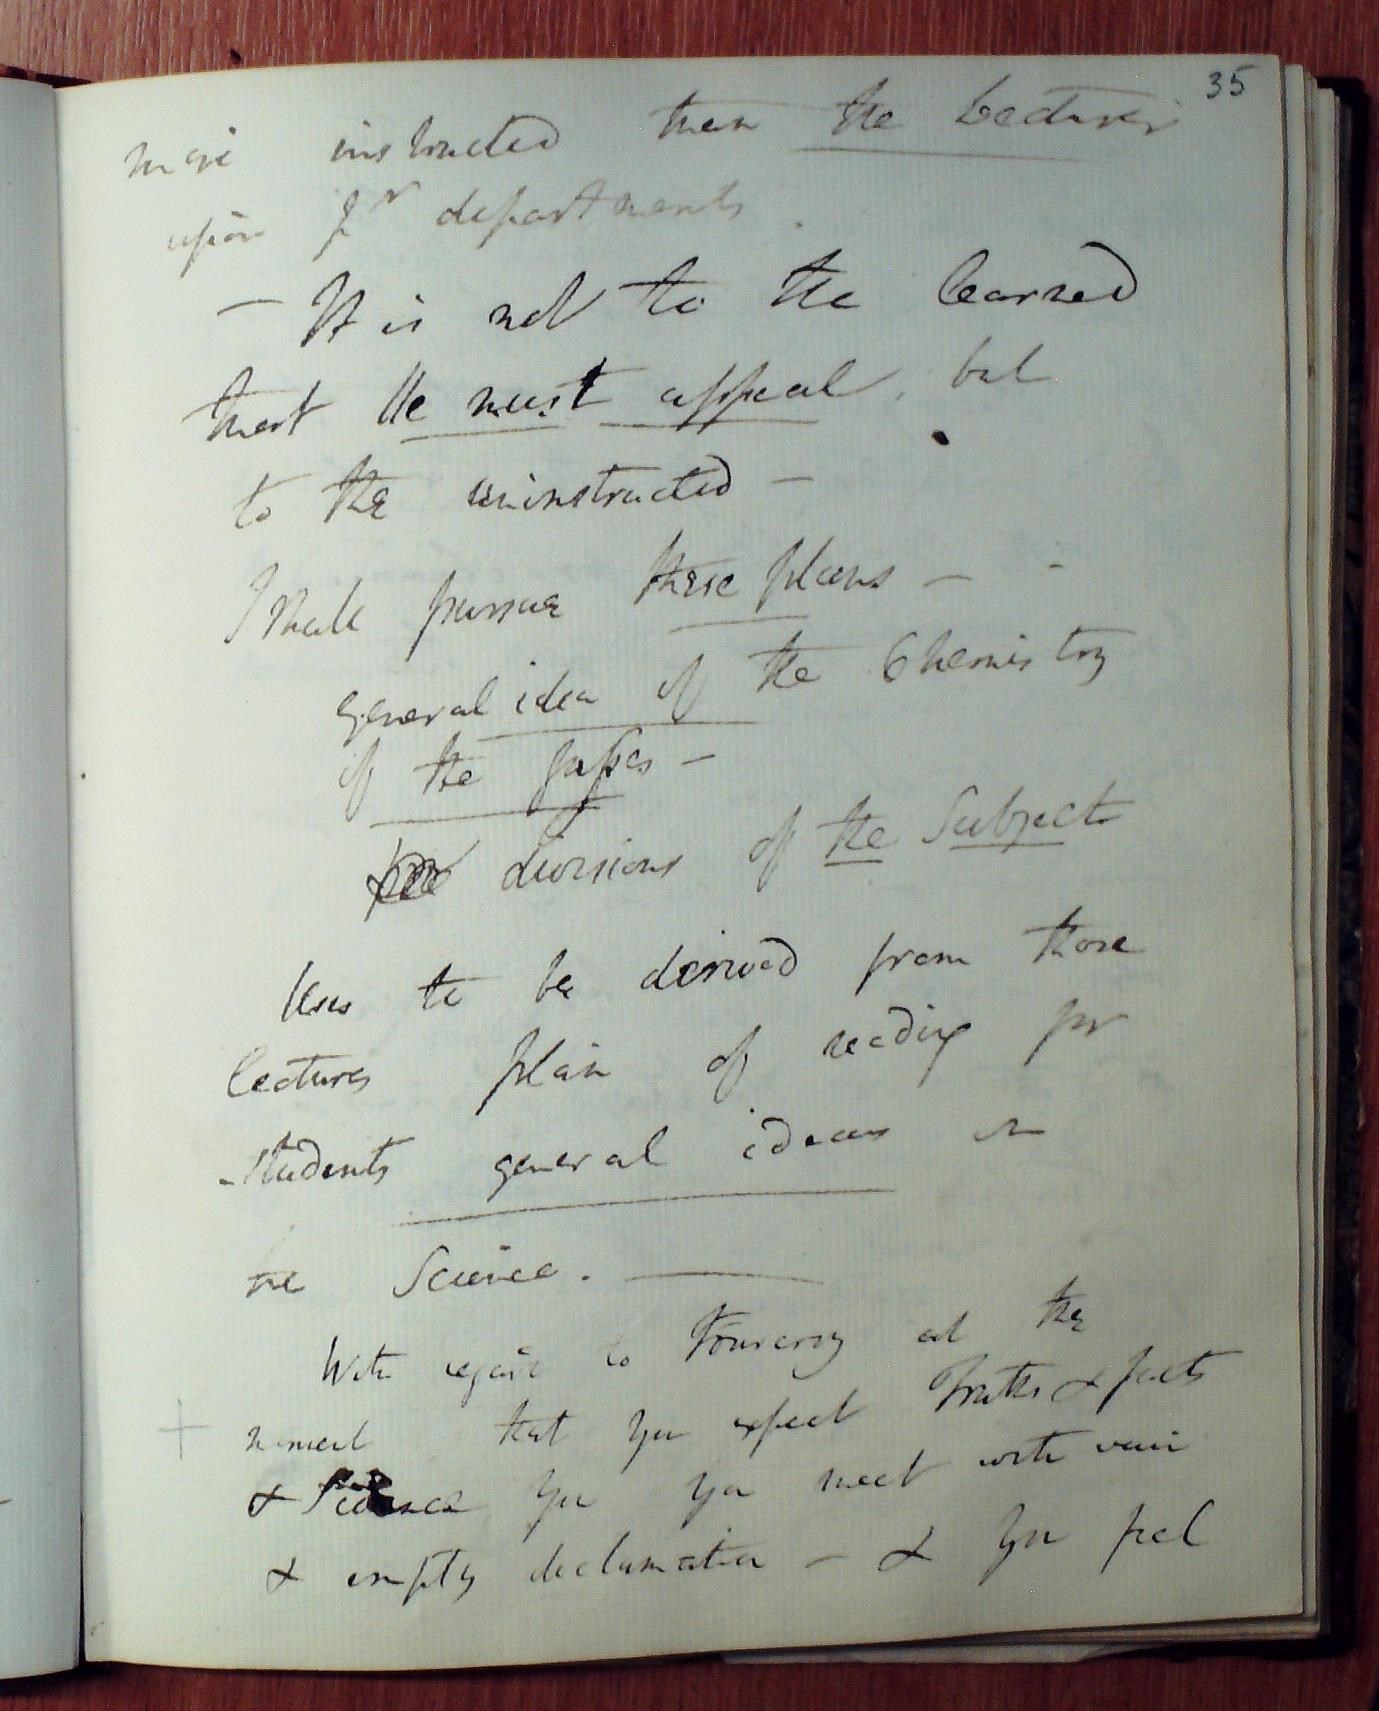 35
more instructed than the Lecturer
upon pr departments.
— It is not to the learned
that He must appeal, but
to the uninstructed —
I shall pursue these plans — -
general idea of the Chemistry
of the gasses —
divisions of the Subject
Uses to be derived from those
lectures plan of reading for
students general ideas on
the Science. —
With regard to Fourcroy at the
+ moment that you expect truths & facts
& Science you you meet with vain
& empty declamation — & you feel